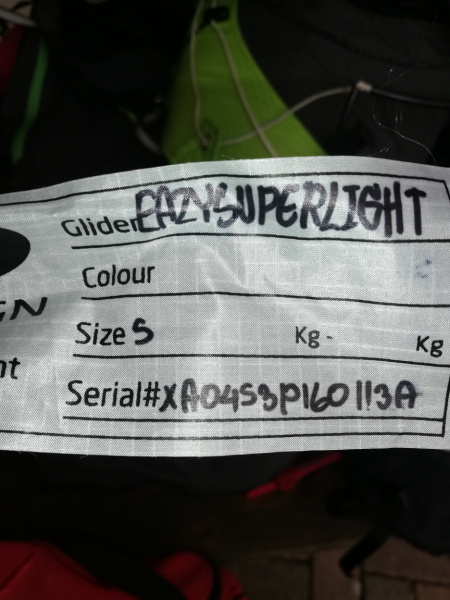 Glider EAZYSUPERLIGHT
Colour
GN
Size S Kg - Kg
nt
Serial# XA04S3P160113A